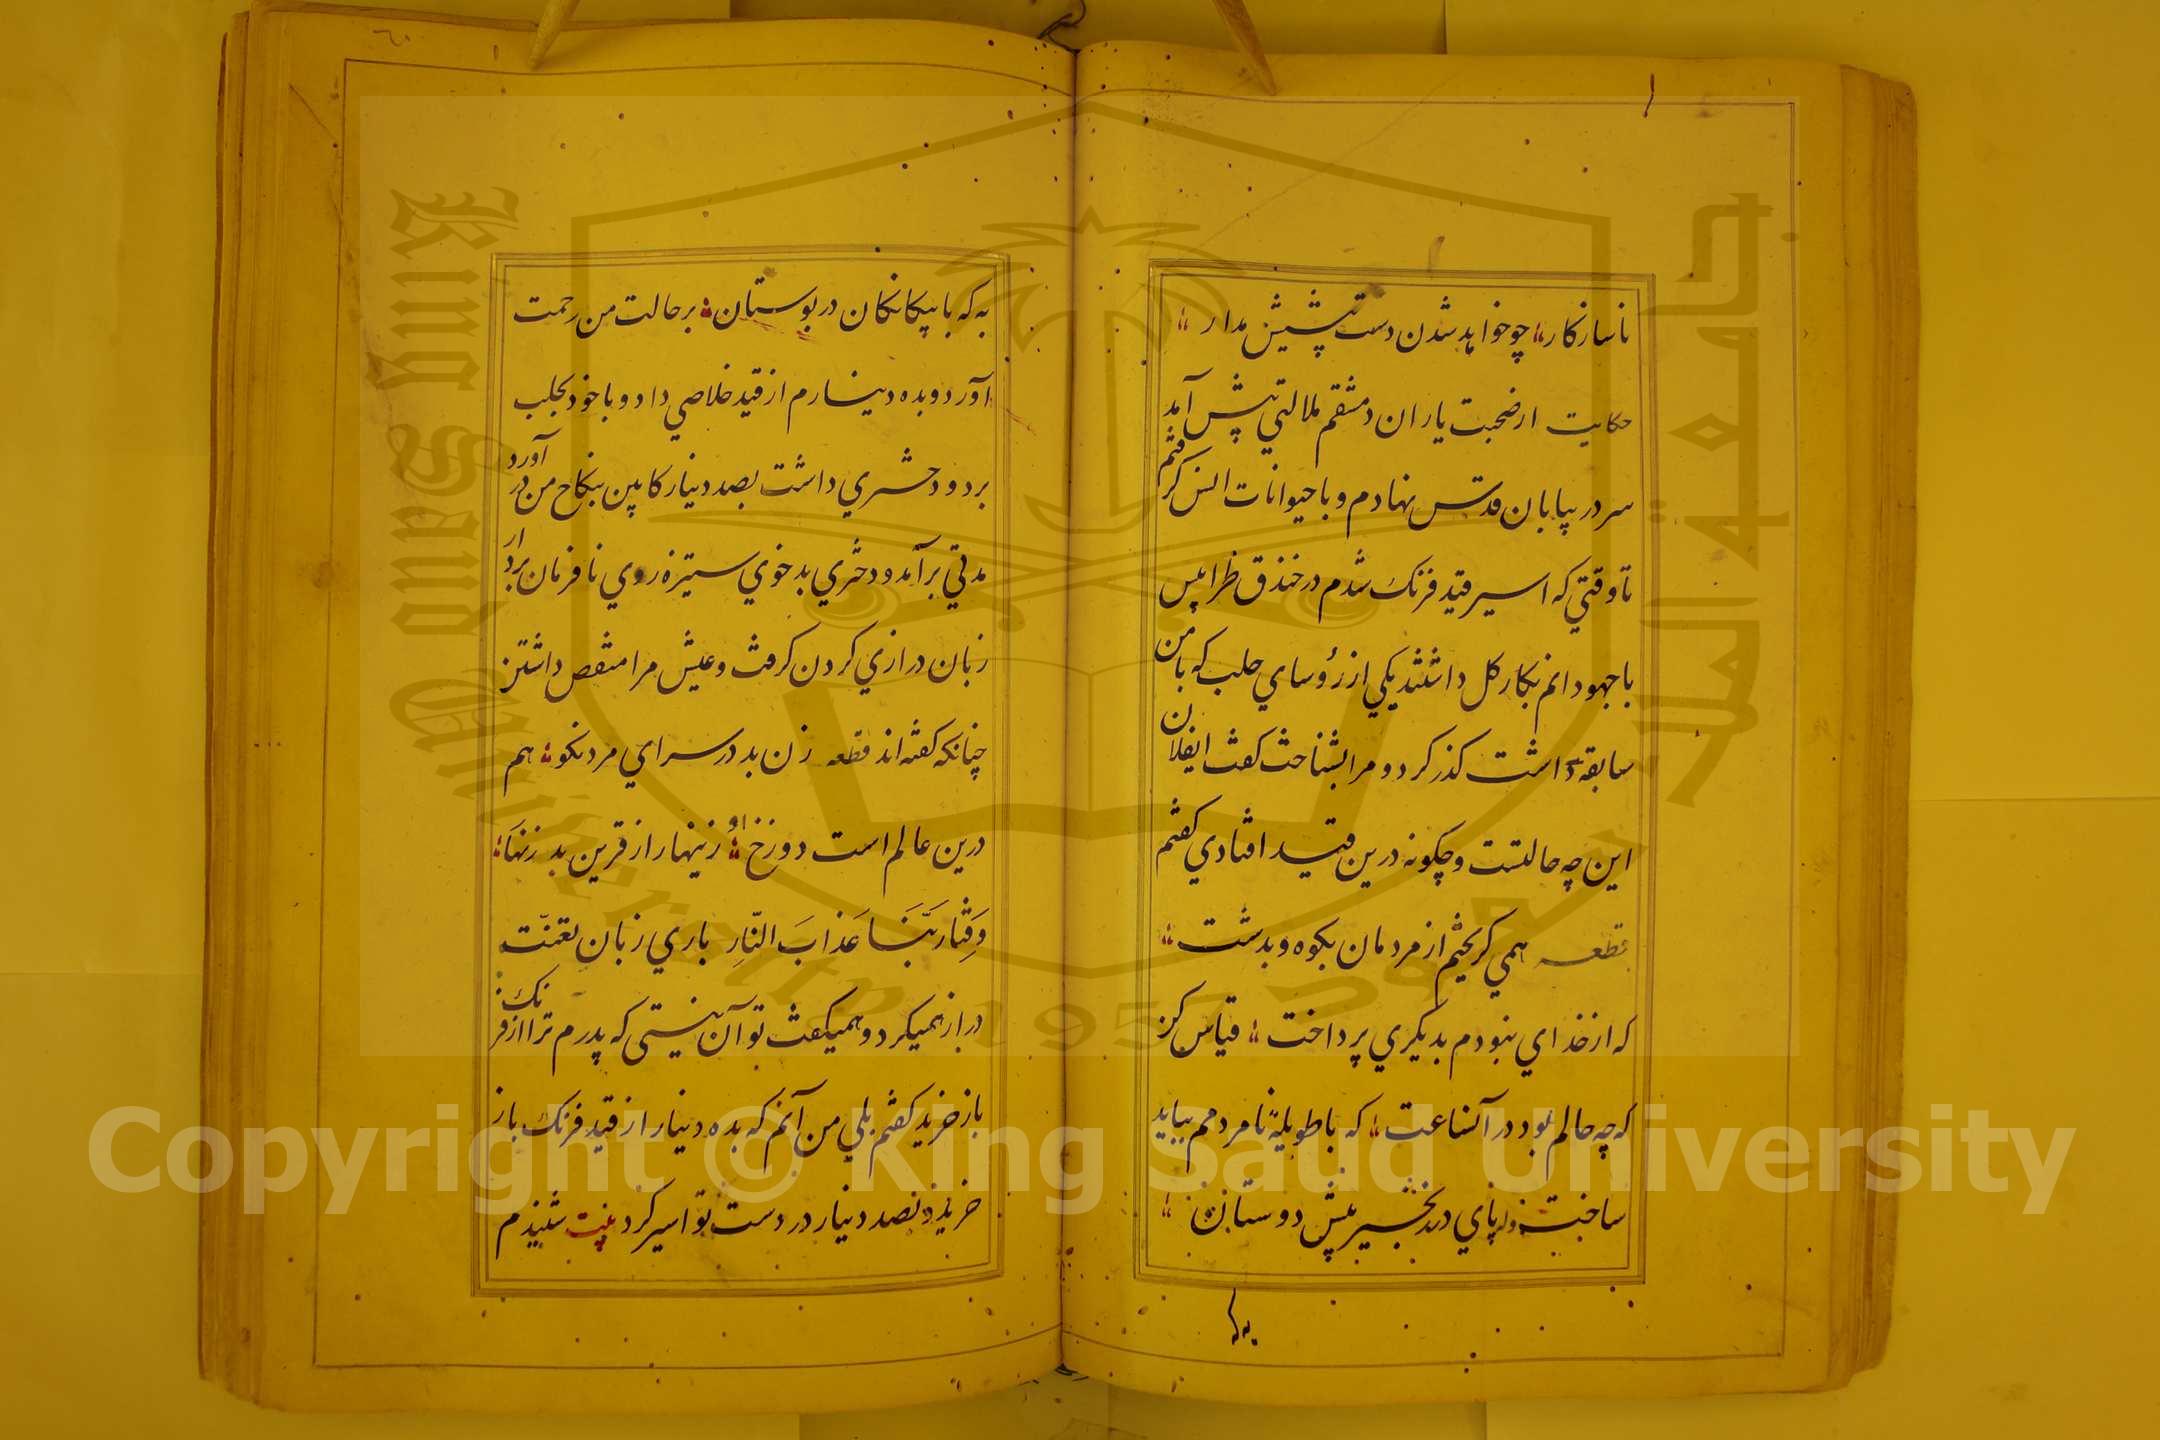 ناسازکار چو خواهد شدن دست پیشش مدار
حکایت از صحبت یاران دمشقم ملالتي پیش آمد
سر در بیابان قدس نهادم و با حیوانات انس کرفتم
تا وقتي که اسیر قید فرنك شدم در خندق طرابلس
با جهودانم بکار کل داشتند یکي از رؤساي حلب که با من
سابقهٔ داشت کذر کرد و مرا بشناخت کفت ایفلان
این چه حالتست و چکونه درین قید افتادي کفتم
قطعه همي کریختم از مردمان بکوه و بدشت
که از خداي نبودم بدیکري پرداخت قیاس کن
که چه حالم بود در آنساعت که با طویلهٔ نامردمم بباید
ساخت پاي در زنجیر پیش دوستان
به که
به که با بیکانکان در بوستان بر حالت من رحمت
آورد و بده دینارم از قید خلاصي داد و با خود بحلب
برد و دختري داشت بصد دینار کابین بنکاح من در آورد
مدتي برآمد و دختري بدخوي ستیزه روي نافرمان بردار
زبان درازي کردن کرفت و عیش مرا منغص داشتن
چنانکه کفته اند قطعه زن بد در سراي مرد نکو هم
درین عالم است دوزخ او زینهار از قرین بد زنهار
وَقِنَا رَبَّنَا عَذابَ النّارِ باري زبان تعنّت
دراز همیکرد و همیکفت تو آن نیستي که پدرم ترا از فرنك
باز خرید کفتم بلي من آنم که بده دینار از قید فرنك باز
خرید و بصد دینار در دست تو اسیر کرد بیت شنیدم
King Saud University
جامعة الملك سعود
1957
Copyright © King Saud University